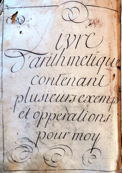 Livre
d'arithmetique
contenant
plusieurs exemp
et opperations
pour moy